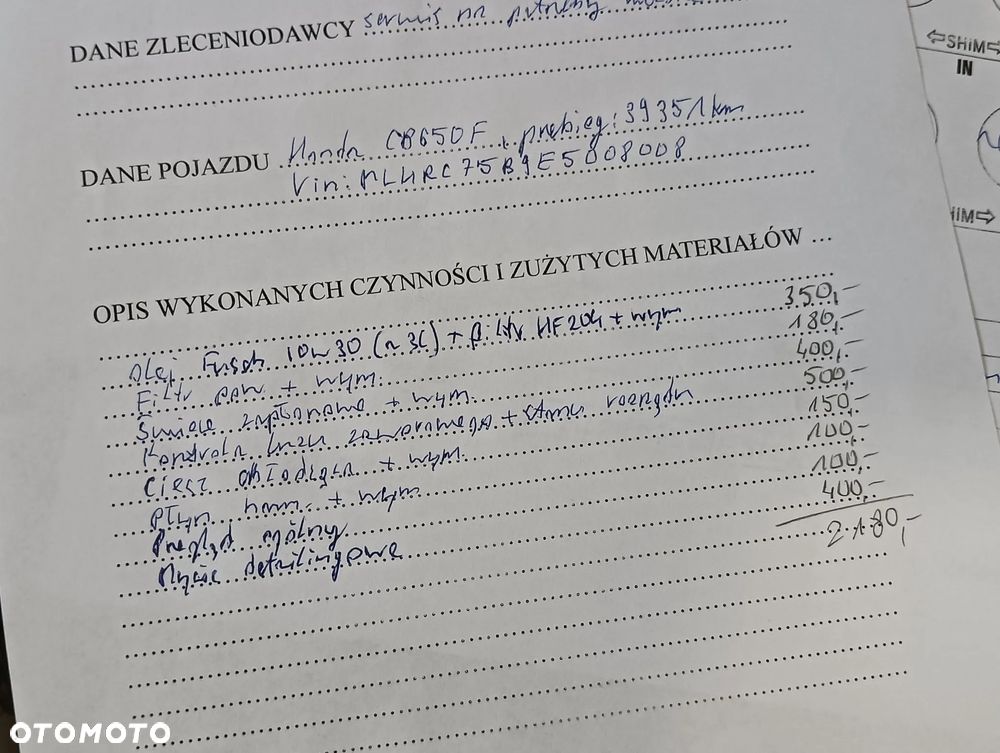 DANE ZLECENIODAWCY serwis na potrzeby
DANE POJAZDU Honda CB650F, przebieg: 39351km
Vin: MLHRC75B9E5008008
OPIS WYKONANYCH CZYNNOŚCI I ZUŻYTYCH MATERIAŁÓW ...
Olej Fusch 10w30 (~3L) + filtr HF204 + wym 350,-
Filtr pow + wym. 180,-
Świece zapłonowe + wym. 400,-
Kontrola luzu zaworowego + stanu rozrządu 500,-
Ciecz chłodząca + wym. 150,-
Płyn ham. + wym 100,-
Przegląd ogólny 100,-
Mycie detailingowe 400,-
2180,-
⇦SHIM⇨
IN
HIM⇨
OTOMOTO